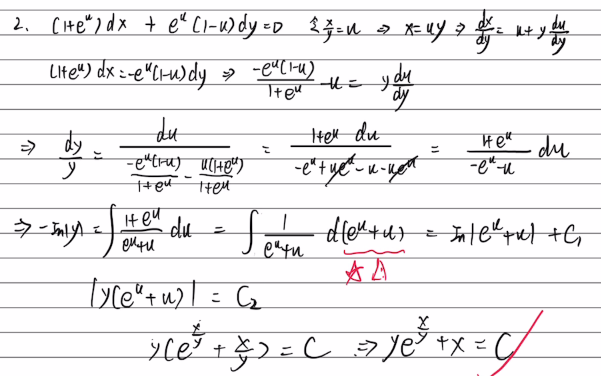 2. (1+e^u)dx + e^u(1-u)dy=0 令 x/y=u ⇒ x=uy ⇒ dx/dy = u+y du/dy
(1+e^u)dx=-e^u(1-u)dy ⇒ -e^u(1-u)/(1+e^u) -u = y du/dy
⇒ dy/y = du/(-e^u(1-u)/(1+e^u) - u(1+e^u)/(1+e^u)) = (1+e^u du)/(-e^u+ue^u-u-ue^u) = (1+e^u)/(-e^u-u) du
⇒ -ln|y| = ∫ (1+e^u)/(e^u+u) du = ∫ 1/(e^u+u) d(e^u+u) = ln|e^u+u| + C₁
☆ △
|y(e^u+u)| = C₂
y(e^(x/y) + x/y) = C ⇒ ye^(x/y) + x = C